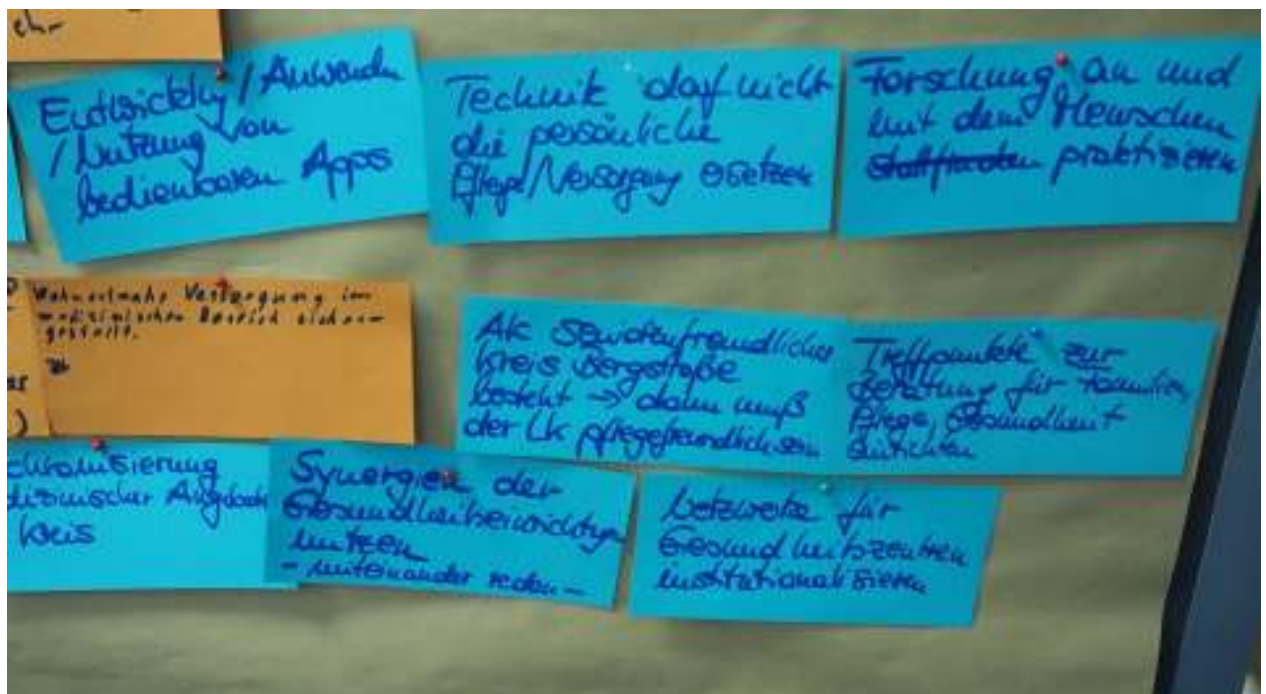 ehr
Entwickly / Anwenden
/ Nutzung von
bedienbaren Apps
Technik darf nicht
die persönliche
Pflege/Versorgung ersetzen
Forschung an und
mit dem Menschen
stattfinden praktizieren
Wohnortnahe Versorgung im
medizinischen Bereich sicher-
gestellt.
AK Seniorenfreundlicher
Kreis Bergstraße
besteht → dann muß
der LK pflegefreundlich sein
Treffpunkte zur
Beratung für Familien,
Pflege, Gesundheit
einrichten
chronisierung
dizinischer Angebote
Kreis
Synergien der
Gesundheitseinrichtungen
nutzen
- miteinander reden -
Netzwerke für
Gesundheitszentren
institutionalisieren